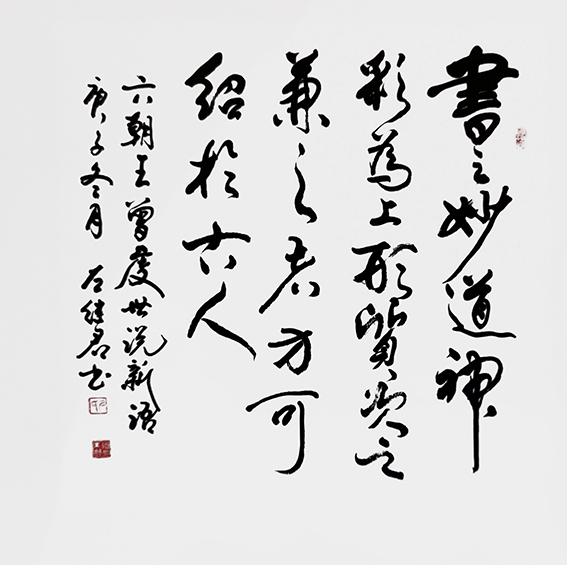 書之妙道神
彩為上形質次之
兼之者方可
紹於古人
六朝王曾虔世说新语
庚子冬月 左继君书